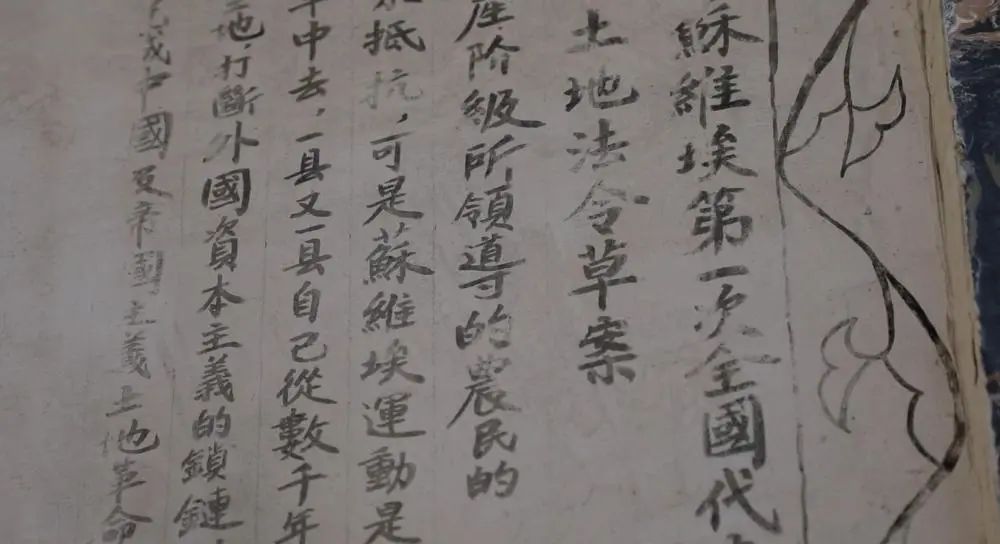 蘇維埃第一次全國代
土地法令草案
產阶級所領導的農民的
抵抗，可是蘇維埃運動是
中去，一县又一县自己從數千年
地，打斷外國資本主義的鎖鏈
成中國反帝國主義土地革命